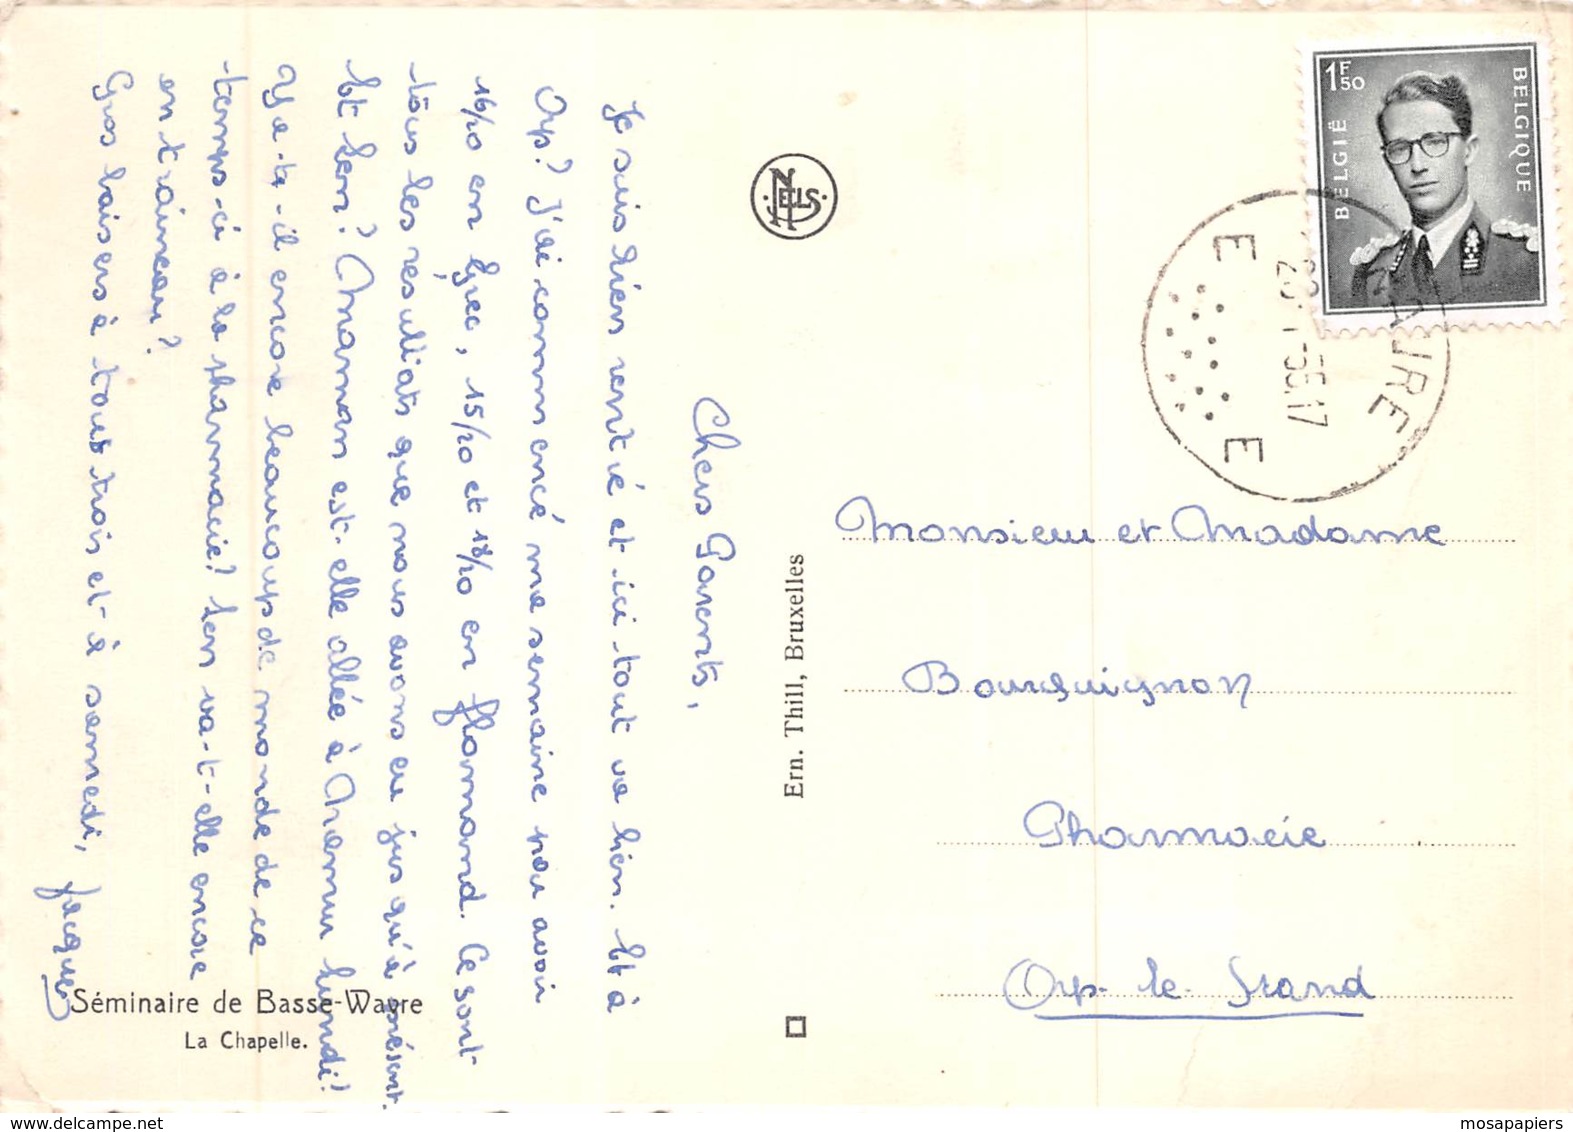 Chers Parents,
Je suis bien rentré et ici tout va bien. Et à
Orp? J'ai commencé ma semaine par avoir
16/20 en Grec, 15/20 et 18/20 en flamand. Ce sont
tous les resultats que nous avons eu jusqu'à présent.
Et bern? Maman est-elle allée à Namur lundi?
Y a-t-il encore beaucoup de monde de ce
temps-ci à la pharmacie? Lem va-t-elle encore
en traineau?
Gros baisers à tous trois et à samedi, Jacques
Séminaire de Basse-Wavre
La Chapelle.
Ern. Thill, Bruxelles
NELS
1F50
BELGIË
BELGIQUE
WAVRE
E E
Monsieur et Madame
Bourguignon
Pharmacie
Orp-le-Grand
mosapapiers
www.delcampe.net